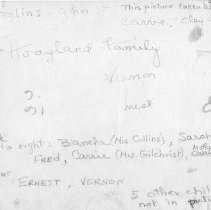 This picture taken
Carrie, Clay
Hoagland Family
Vernon
2.
2)
to right: Blanche (Mrs Collins), Sarah
FRED, Carrie (Mrs. Gilchrist),
ERNEST, VERNON
5 other chil
not in pictu